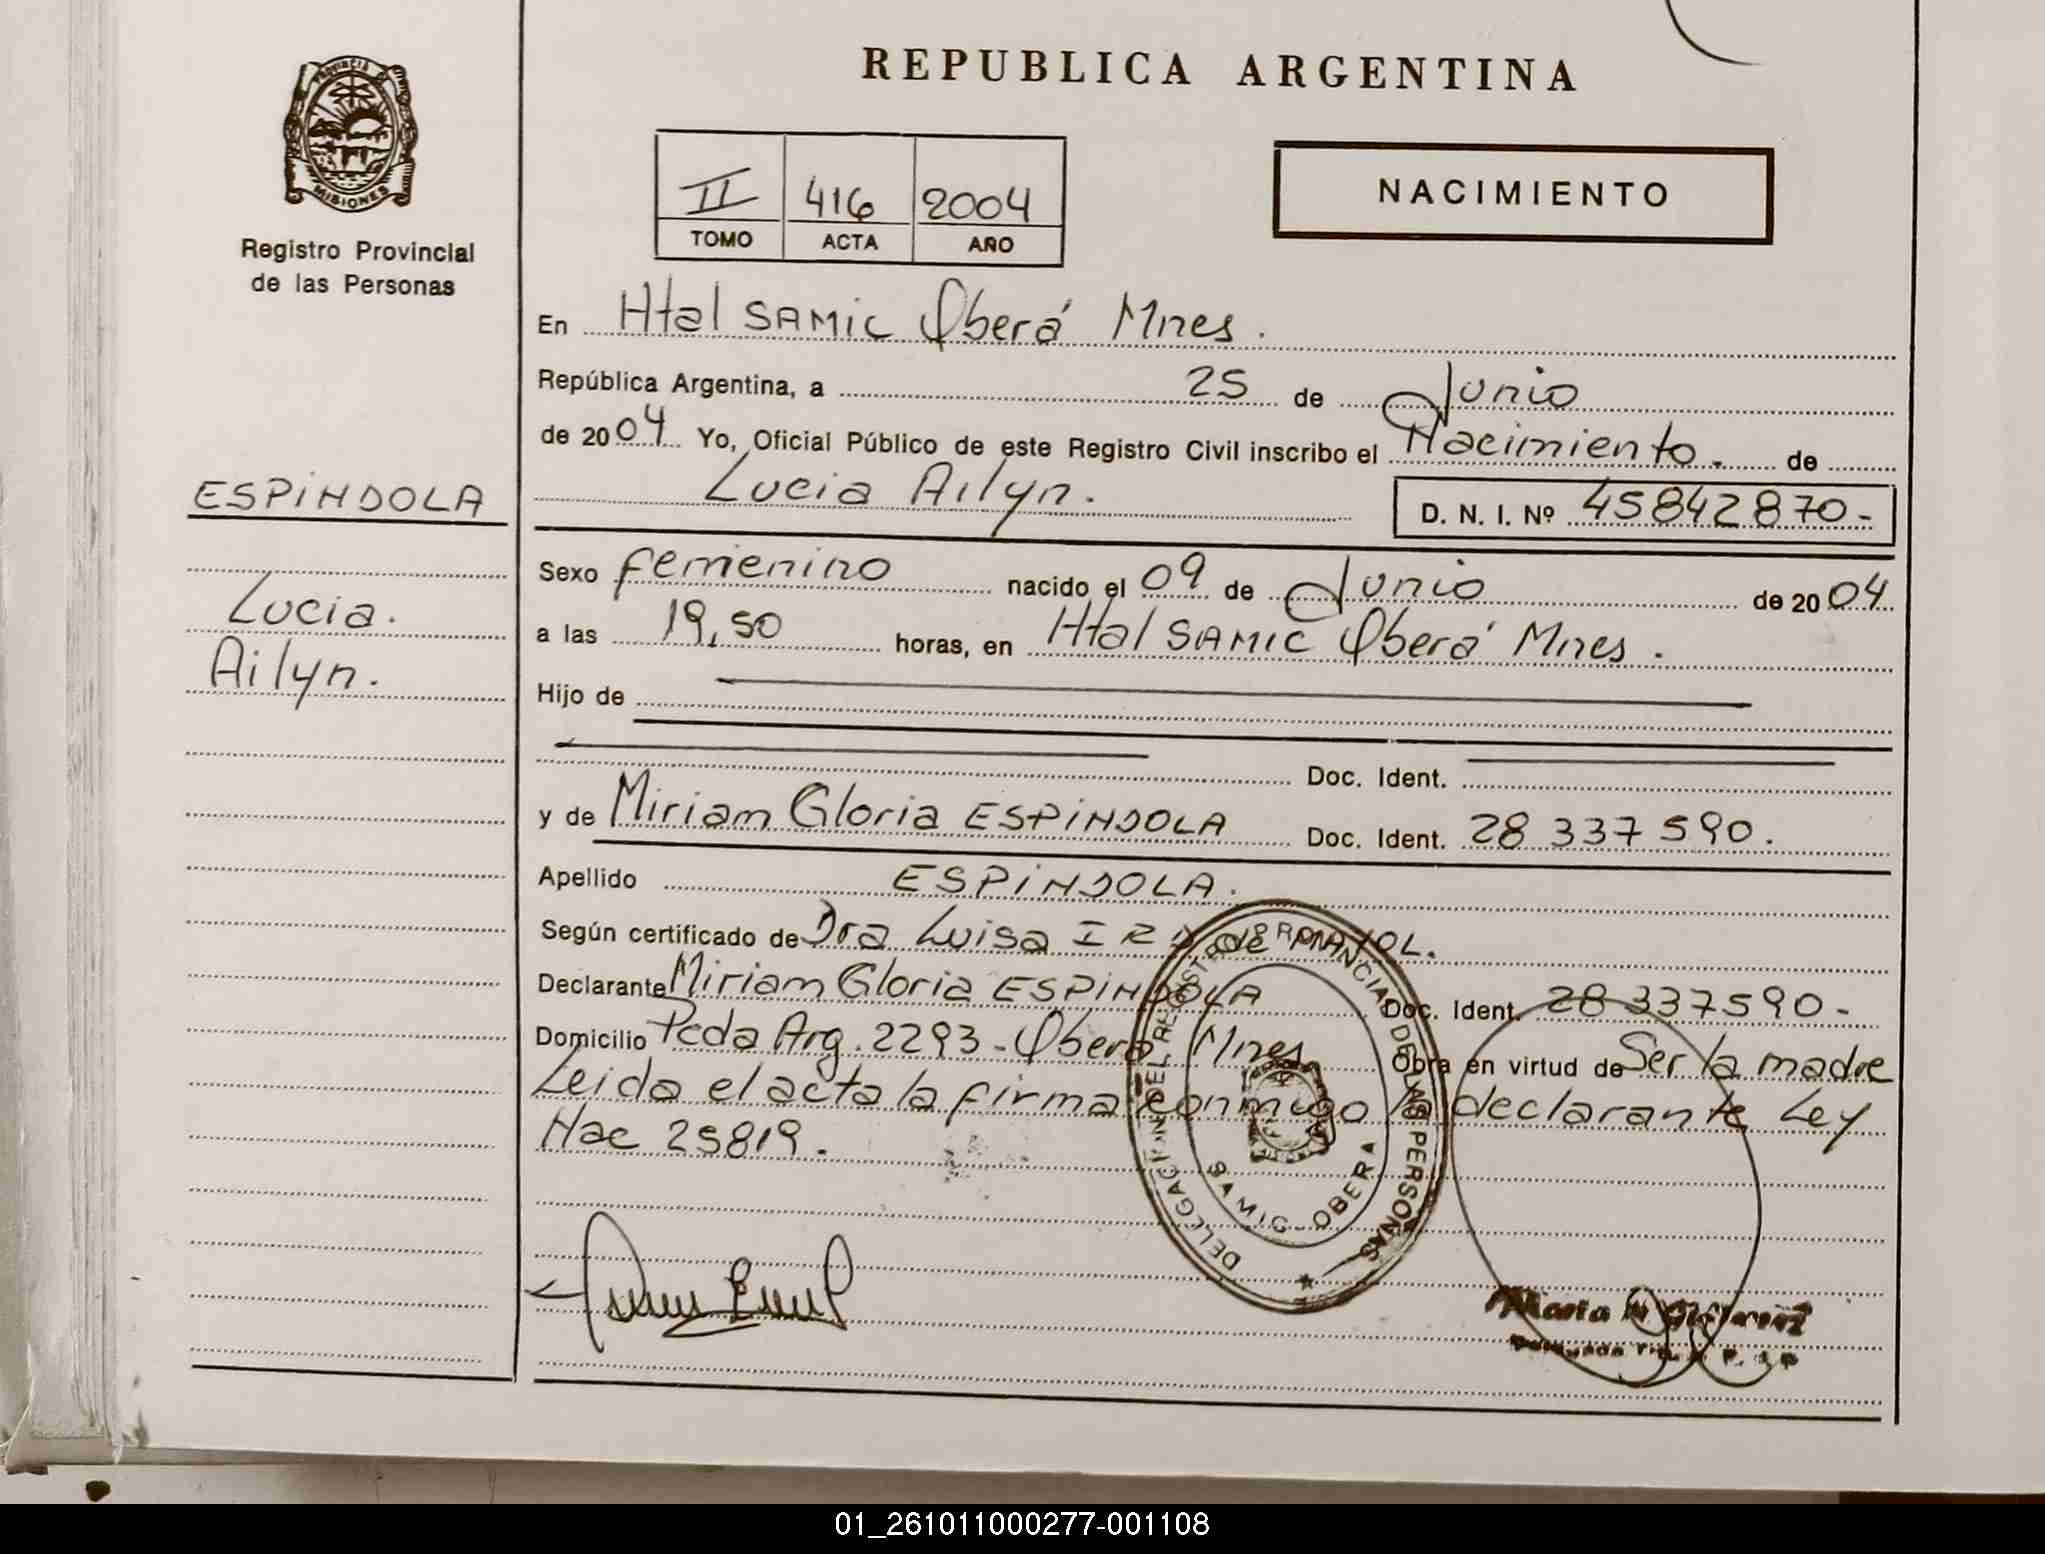 REPUBLICA ARGENTINA
PROVINCIA DE
MISIONES
Registro Provincial
de las Personas
II 416 2004
TOMO ACTA AÑO
NACIMIENTO
En Htal SAMIC Oberá Mnes.
República Argentina, a 25 de Junio
de 2004 Yo, Oficial Público de este Registro Civil inscribo el Nacimiento. de
Lucia Ailyn. D. N. I. Nº 45842870-
ESPINDOLA
Lucia.
Ailyn.
Sexo femenino nacido el 09 de Junio de 2004
a las 19,50 horas, en Htal SAMIC Oberá Mnes.
Hijo de
Doc. Ident.
y de Miriam Gloria ESPINDOLA Doc. Ident. 28 337 590.
Apellido ESPINDOLA.
Según certificado de Dra Luisa de MAYOL.
Declarante Miriam Gloria ESPINDOLA Doc. Ident. 28 337590-
Domicilio Pcda Arg. 2293- Oberá Mnes Obra en virtud de Ser la madre
Leida el acta la firma conmigo la declarante Ley
Nac 25819.
DELEGACION DEL REGISTRO PROVINCIAL DE LAS PERSONAS
SAMIC - OBERA
Maria
01_261011000277-001108